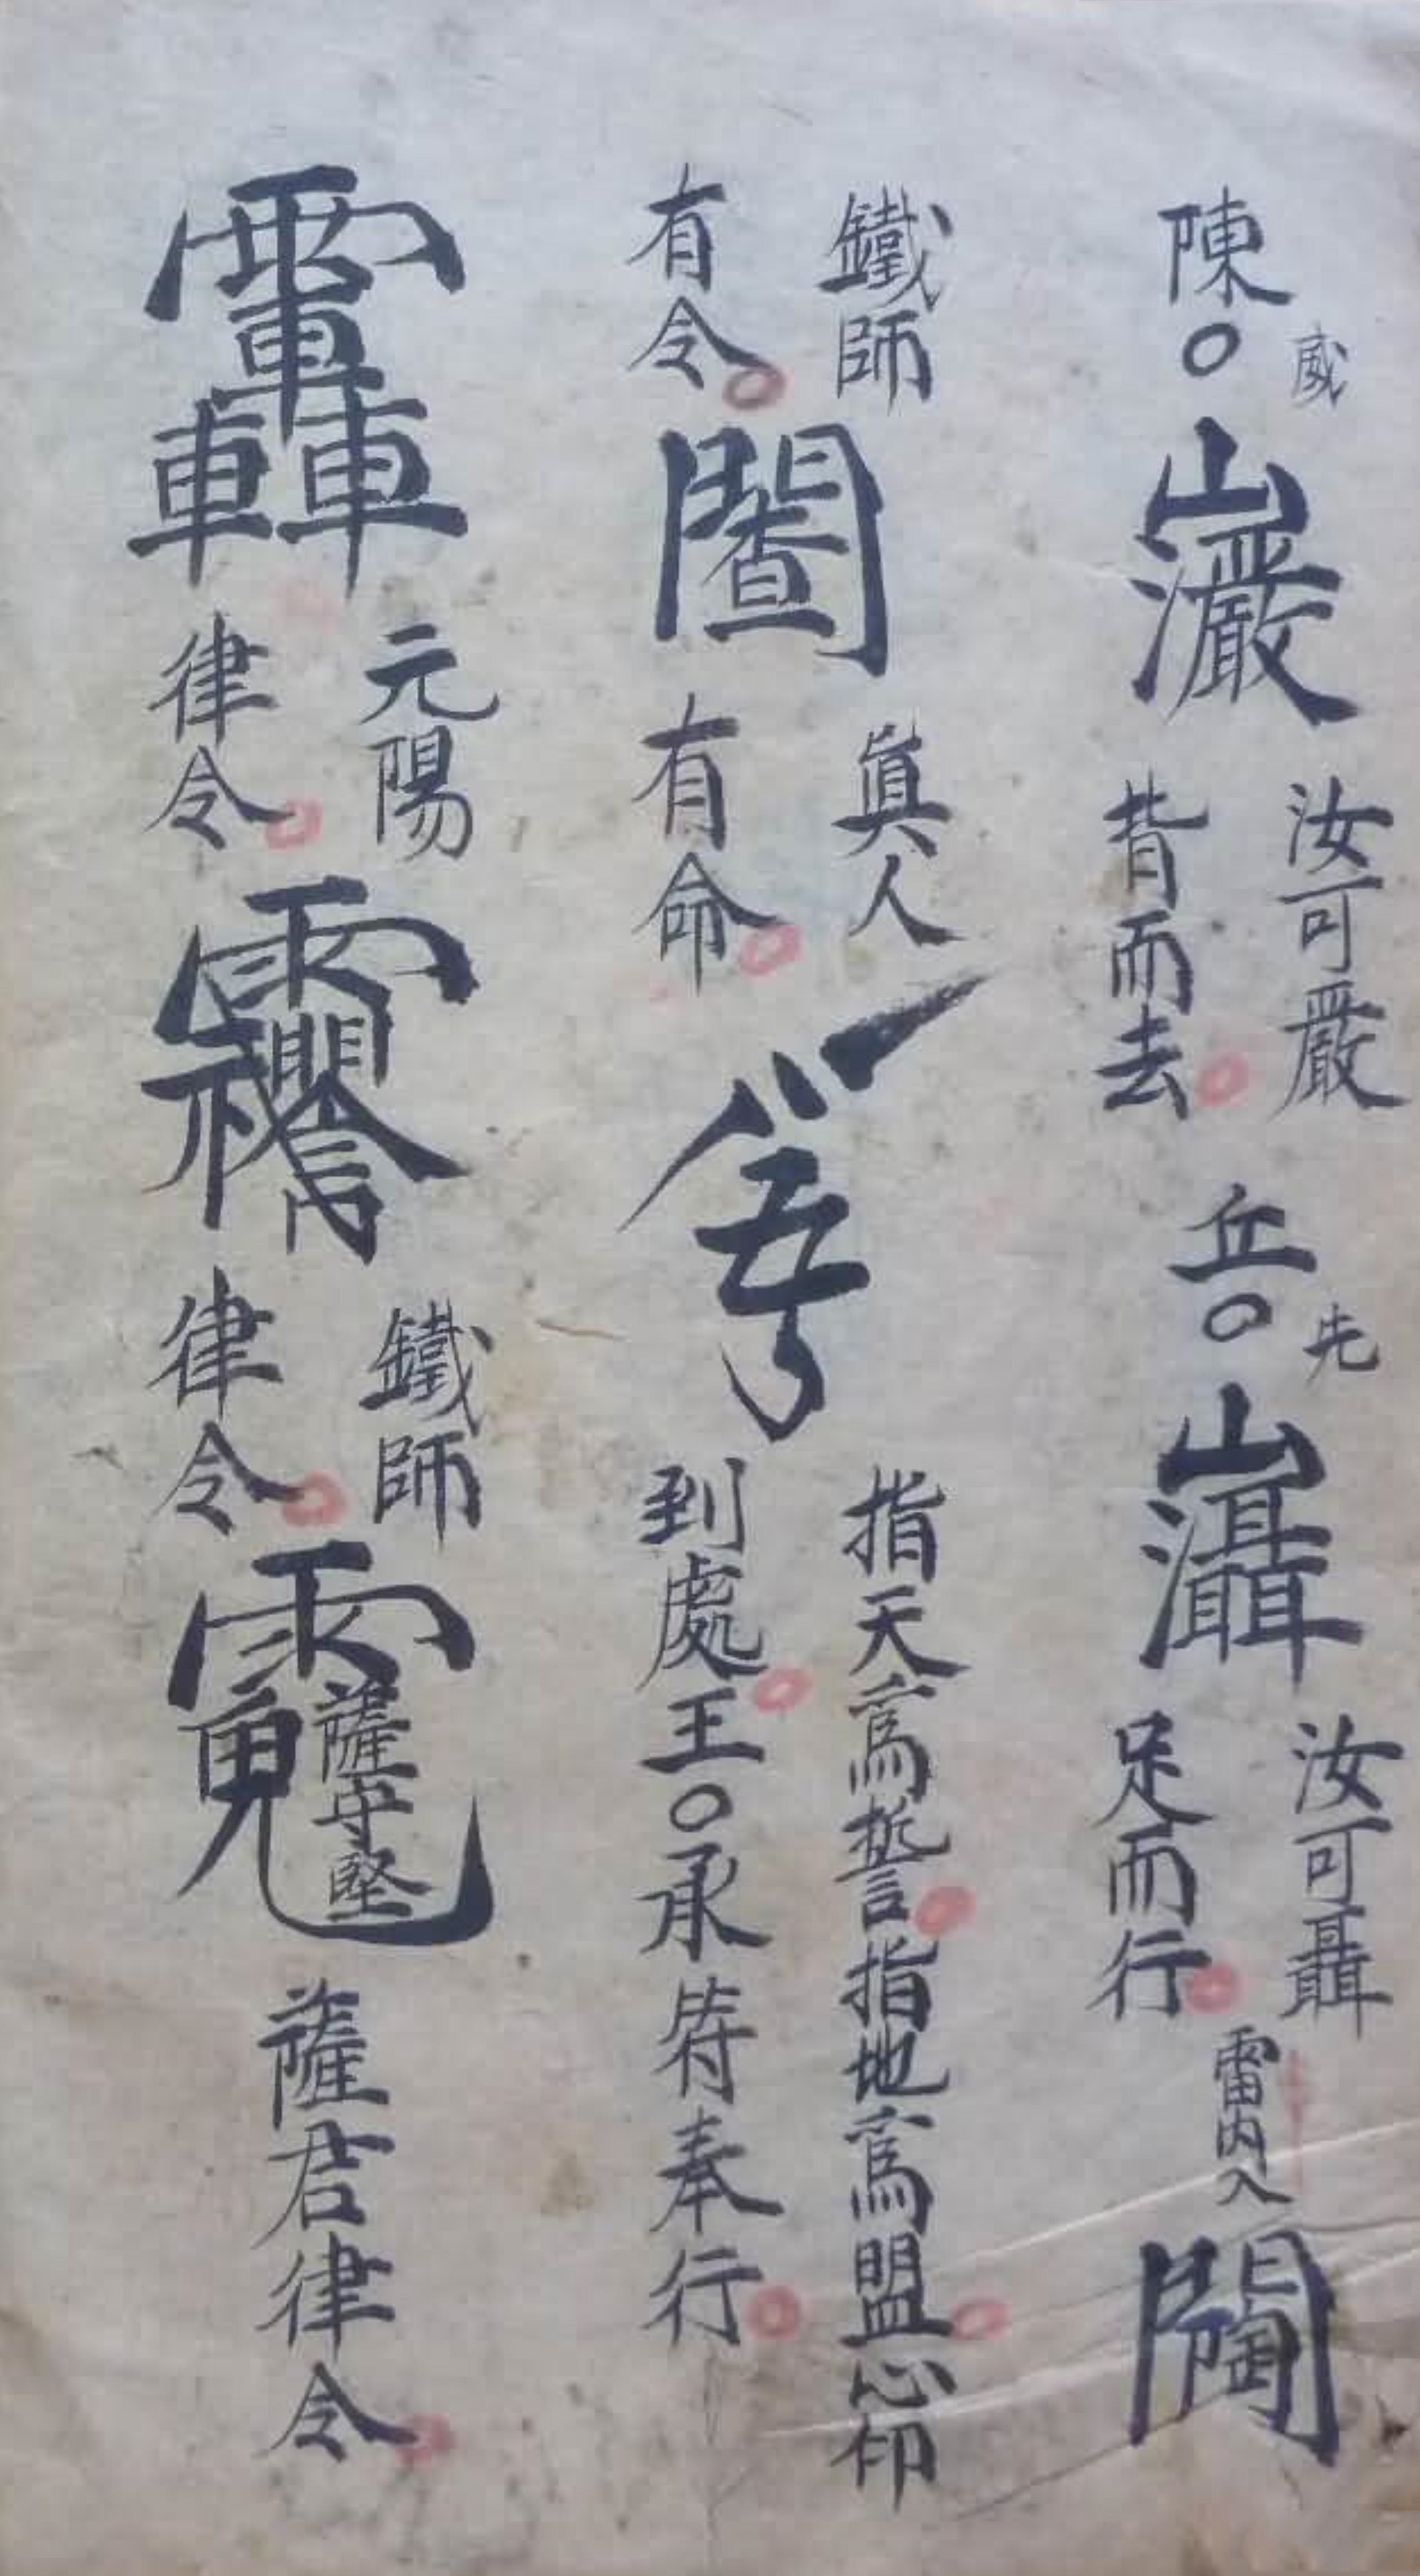 陳〇威
汝可嚴
背而去
丘〇先
汝可聶
足而行
雷內入
鐵師
有令
眞人
有命
指天爲誓指地爲盟心印
到處王〇承符奉行
元陽
律令
鐵師
律令
薩守堅
薩君律令